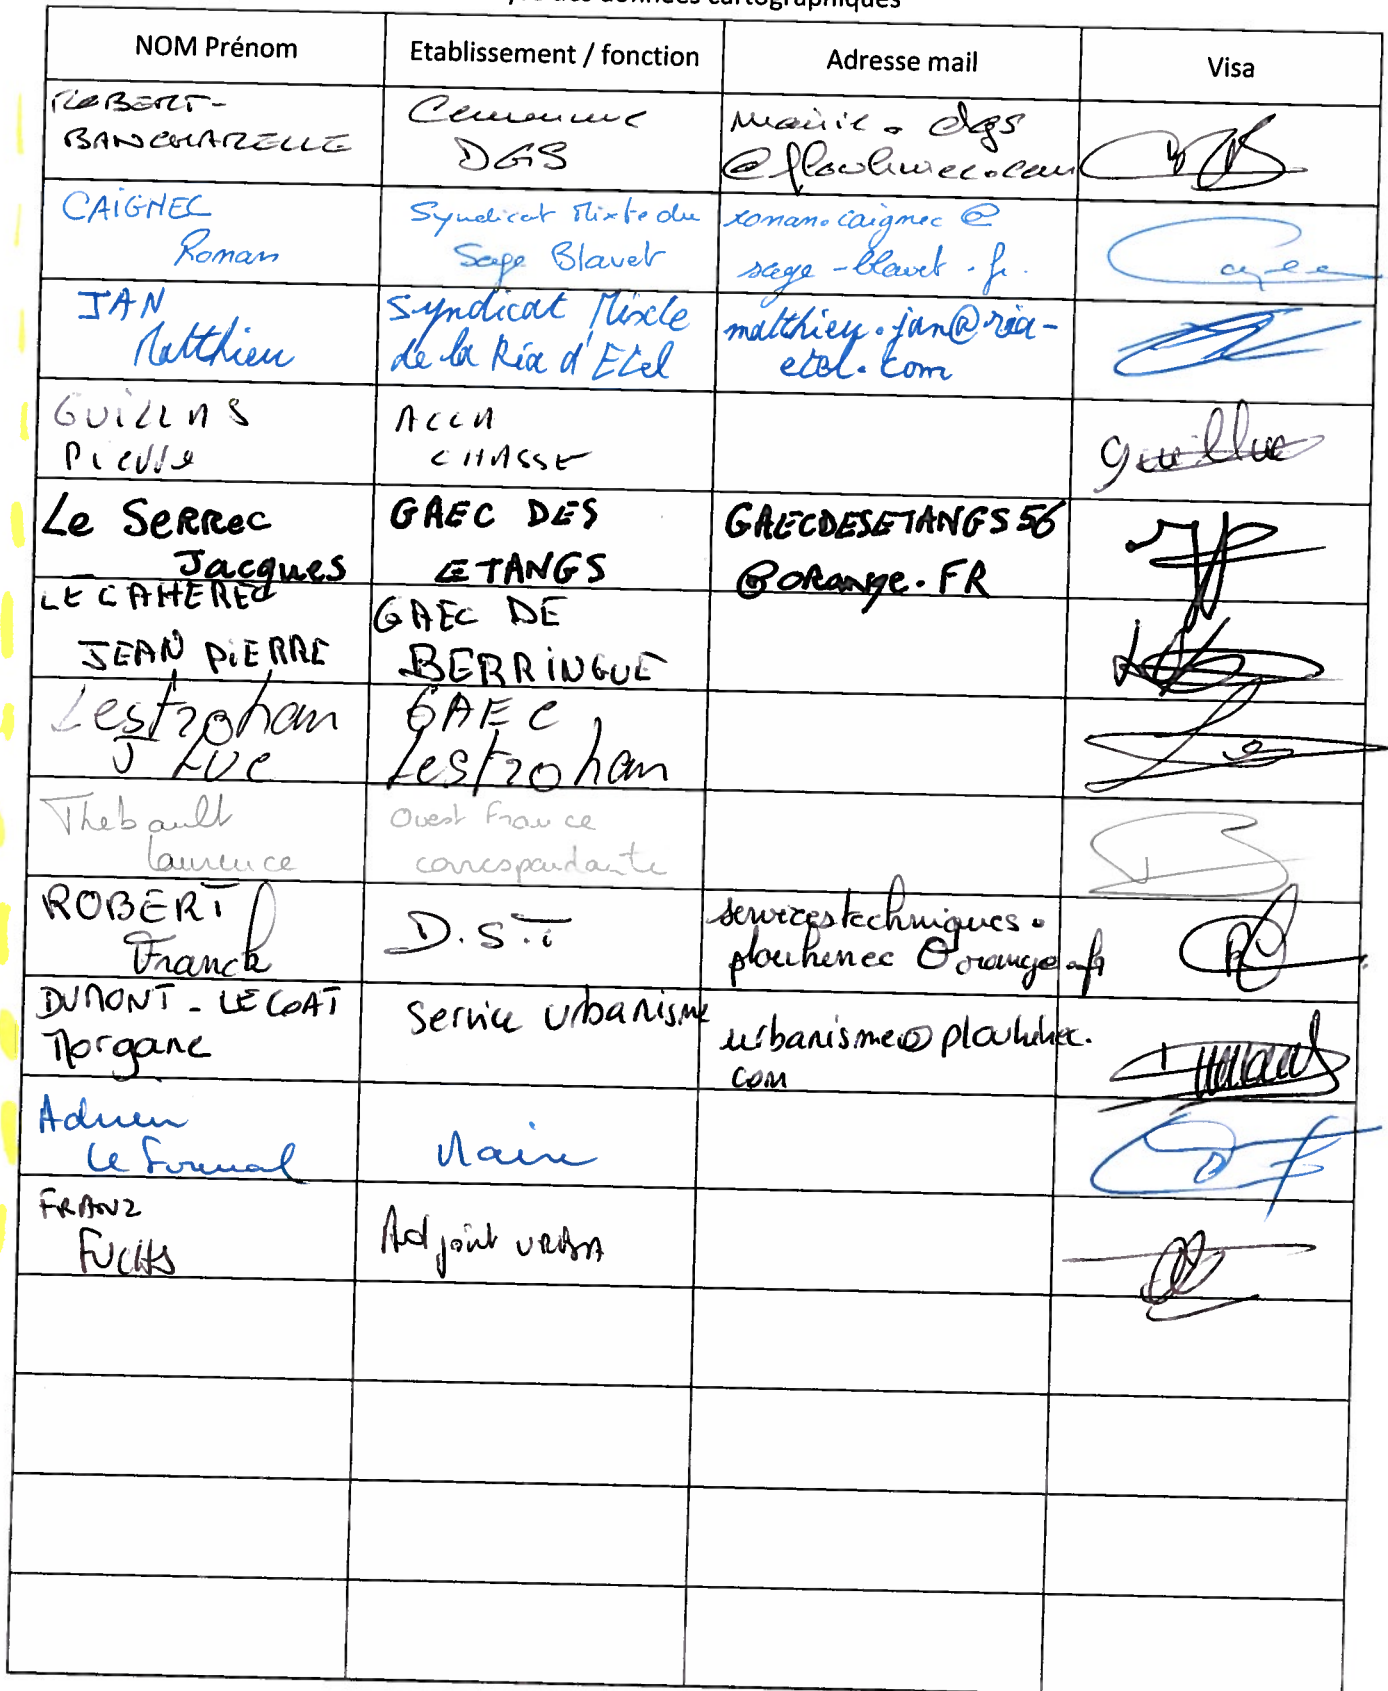 des données cartographiques
NOM Prénom
Etablissement / fonction
Adresse mail
Visa
ROBERT-
BANCHARELLE
Commune
DGS
mairie. dgs
@plouhinec.com
CAIGNEC
Roman
Syndicat Mixte du
Sage Blavet
roman.caignec @
sage-blavet.fr.
JAN
Matthieu
Syndicat Mixte
de la Ria d'Etel
matthieu.jan@ria-
etel.com
GUILLAS
Pierre
ACCA
CHASSE
Le SERRec
Jacques
GAEC DES
ETANGS
GAECDESETANGS56
@orange.FR
LE CAHEREC
JEAN PiERRE
GAEC DE
BERRiNGUE
Lestrohan
J Luc
GAEC
Lestrohan
Thebault
Laurence
Ouest France
correspondante
ROBERT
Franck
D.S.T
servicestechniques.
plouhinec @orange.fr
DUMONT - LE COAT
Morgane
Service urbanisme
urbanisme@plouhinec.
com
Adrien
Le Formal
Maire
FRANZ
FUCHS
Adjoint URBA